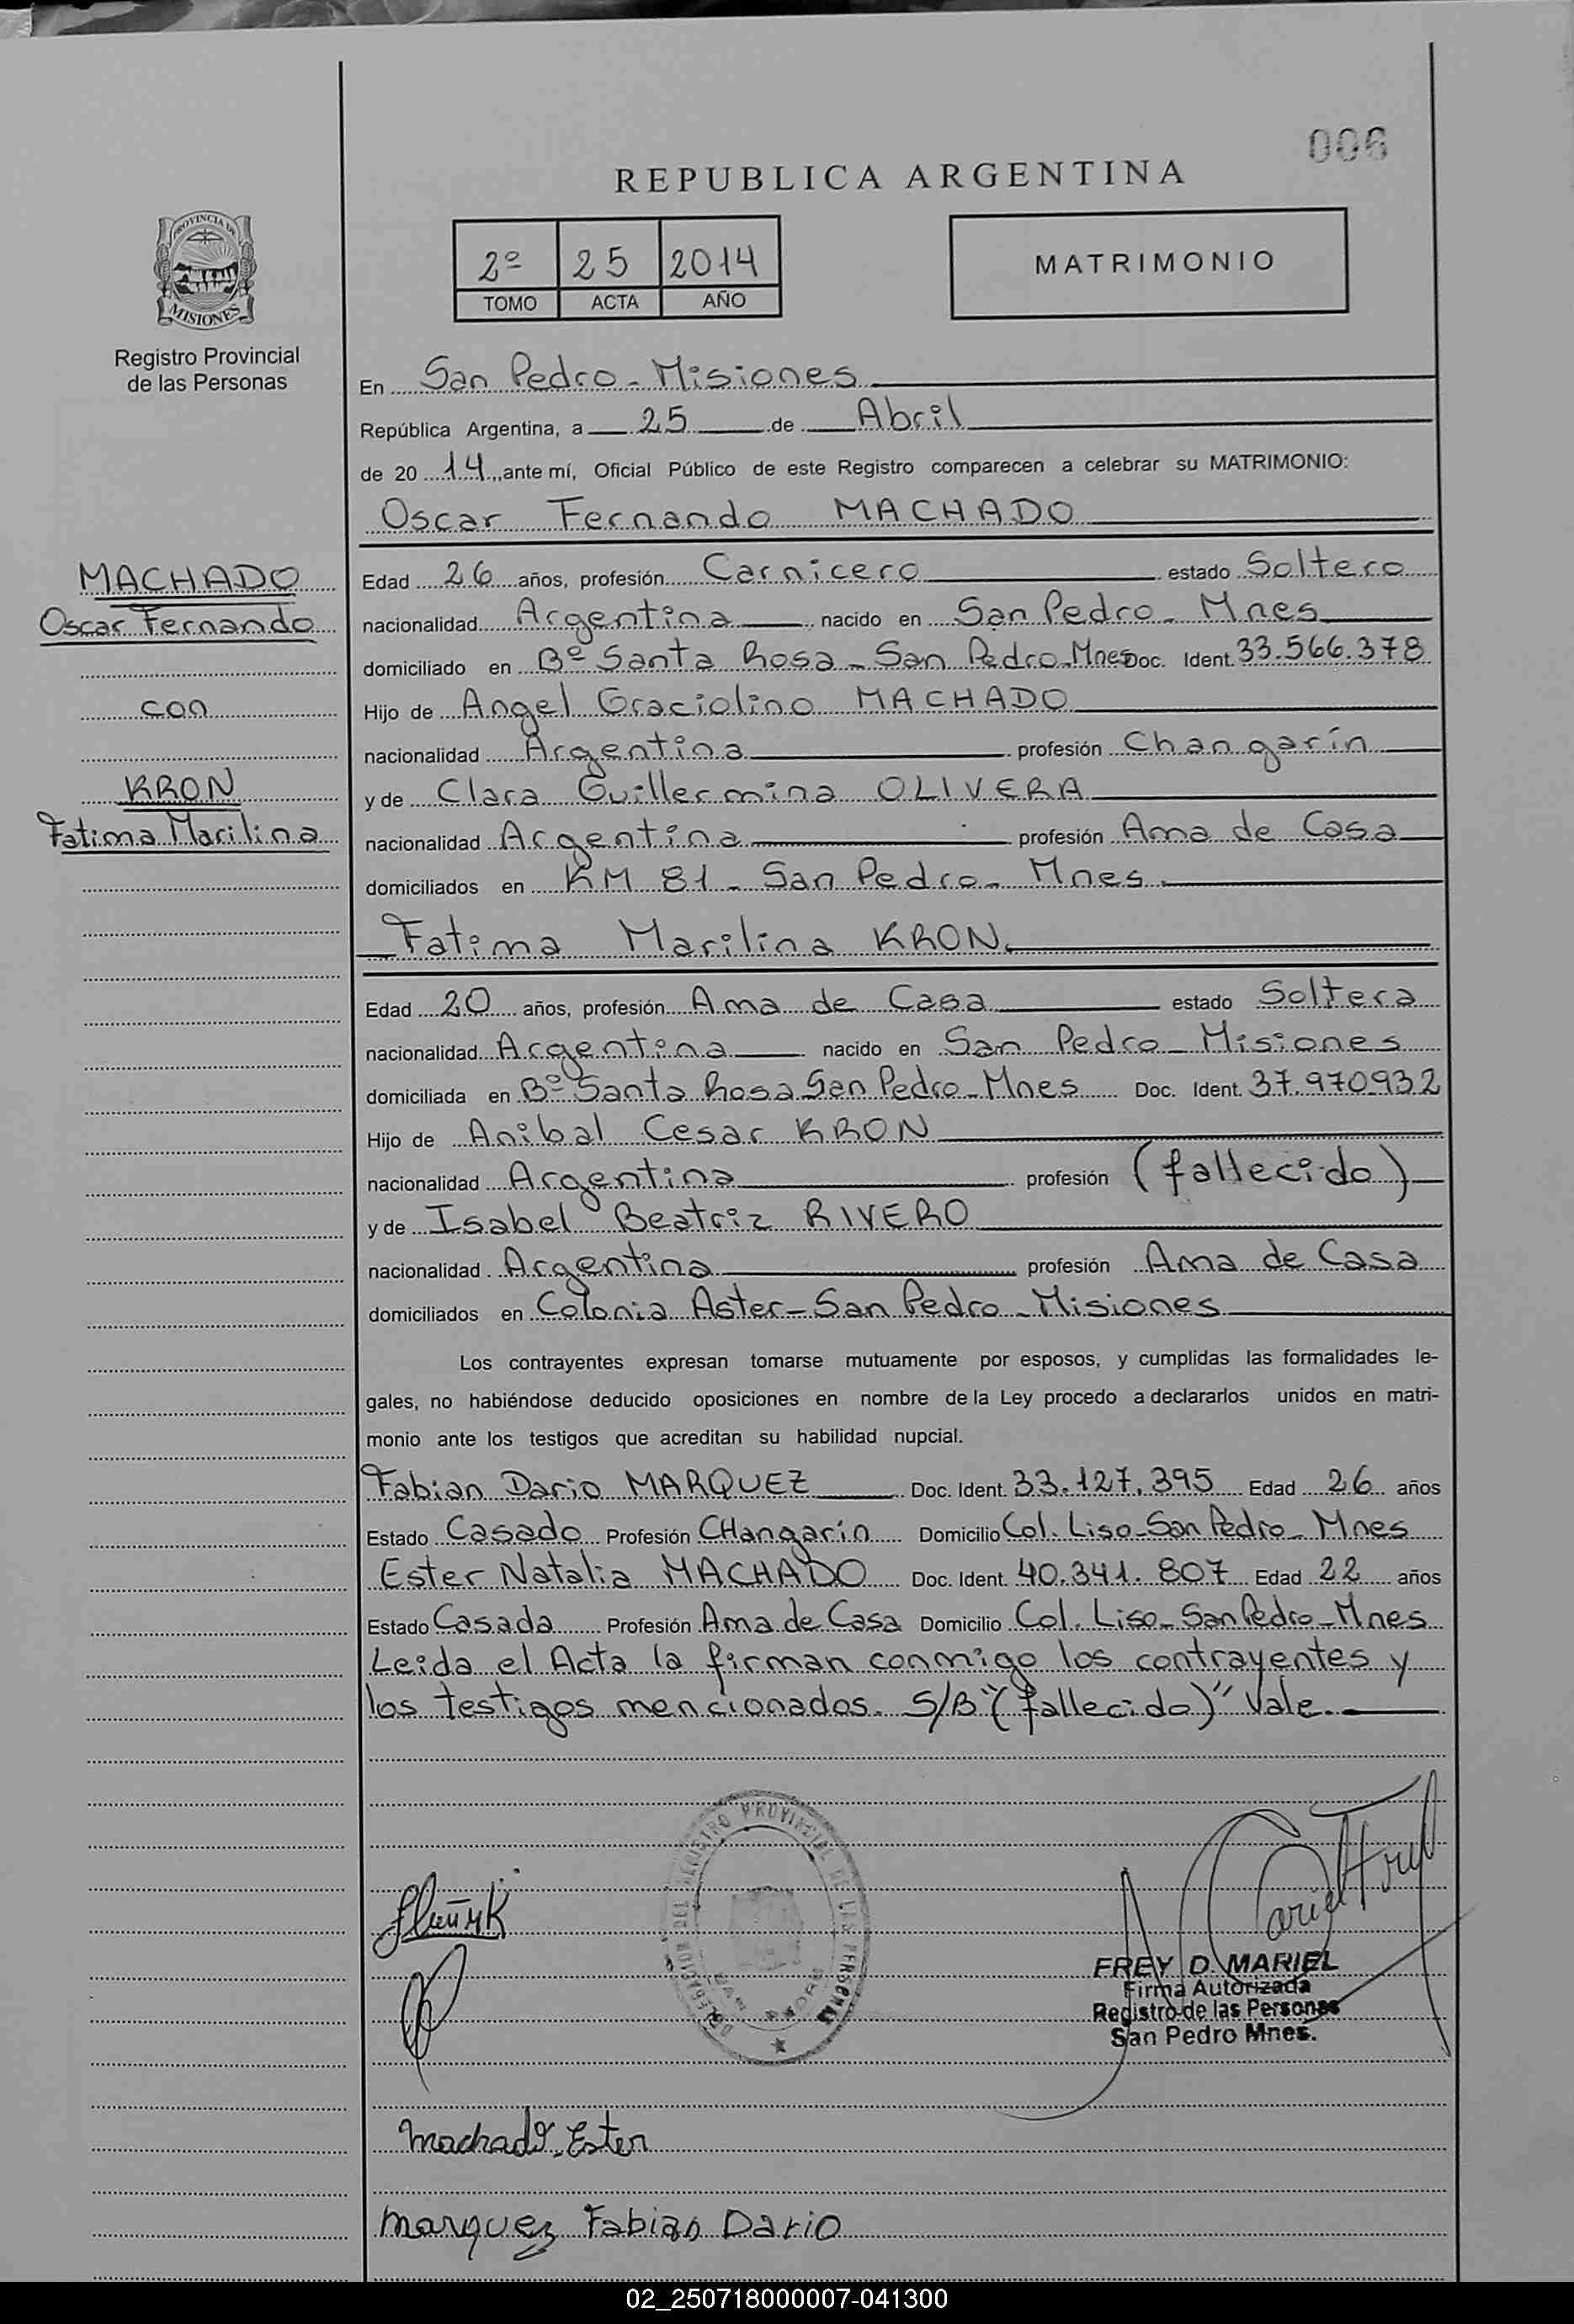 006
REPUBLICA ARGENTINA
PROVINCIA DE
MISIONES
Registro Provincial
de las Personas
2º 25 2014
TOMO ACTA AÑO
MATRIMONIO
En San Pedro - Misiones
República Argentina, a 25 de Abril
de 20 14, ante mí, Oficial Público de este Registro comparecen a celebrar su MATRIMONIO:
Oscar Fernando MACHADO
MACHADO
Oscar Fernando
con
KRON
Fatima Marilina
Edad 26 años, profesión Carnicero estado Soltero
nacionalidad Argentina nacido en San Pedro - Mnes
domiciliado en Bº Santa Rosa - San Pedro - Mnes Doc. Ident. 33.566.378
Hijo de Angel Graciolino MACHADO
nacionalidad Argentina profesión Changarín
y de Clara Guillermina OLIVERA
nacionalidad Argentina profesión Ama de Casa
domiciliados en KM 81 - San Pedro - Mnes.
Fatima Marilina KRON.
Edad 20 años, profesión Ama de Casa estado Soltera
nacionalidad Argentina nacido en San Pedro - Misiones
domiciliada en Bº Santa Rosa San Pedro - Mnes Doc. Ident. 37.970932
Hijo de Anibal Cesar KRON
nacionalidad Argentina profesión (fallecido)
y de Isabel Beatriz RIVERO
nacionalidad Argentina profesión Ama de Casa
domiciliados en Colonia Aster - San Pedro - Misiones
Los contrayentes expresan tomarse mutuamente por esposos, y cumplidas las formalidades le-
gales, no habiéndose deducido oposiciones en nombre de la Ley procedo a declararlos unidos en matri-
monio ante los testigos que acreditan su habilidad nupcial.
Fabian Dario MARQUEZ Doc. Ident. 33.127.395 Edad 26 años
Estado Casado Profesión CHangarín Domicilio Col. Liso - San Pedro - Mnes
Ester Natalia MACHADO Doc. Ident. 40.341.807 Edad 22 años
Estado Casada Profesión Ama de Casa Domicilio Col. Liso - San Pedro - Mnes
Leida el Acta la firman conmigo los contrayentes y
los testigos mencionados. S/B "(fallecido)" Vale.
DELEGACION DEL REGISTRO PROVINCIAL DE LAS PERSONAS
SAN PEDRO
FREY D. MARIEL
Firma Autorizada
Registro de las Personas
San Pedro Mnes.
Machado Ester
Marquez Fabian Dario
02_250718000007-041300